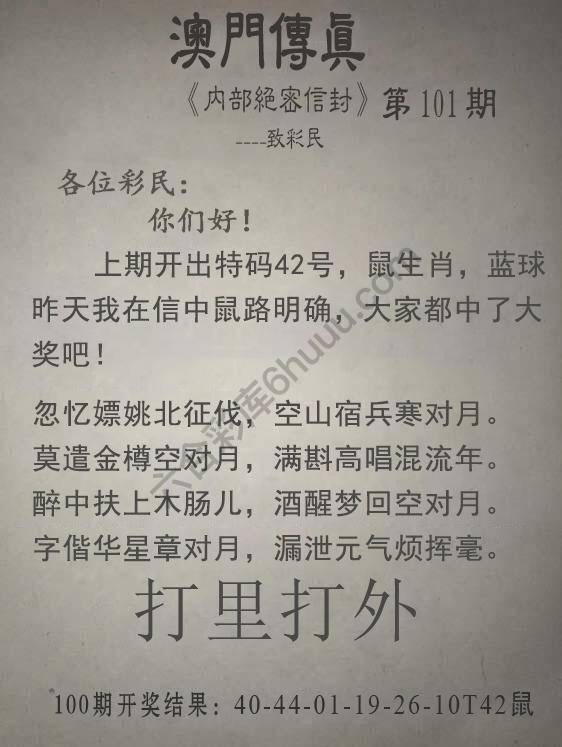 澳門傳眞
《内部絕密信封》第101期
----致彩民
各位彩民：
你们好！
上期开出特码42号，鼠生肖，蓝球
昨天我在信中鼠路明确，大家都中了大
奖吧！
忽忆嫖姚北征伐，空山宿兵寒对月。
莫遣金樽空对月，满斟高唱混流年。
醉中扶上木肠儿，酒醒梦回空对月。
字偕华星章对月，漏泄元气烦挥毫。
打里打外
100期开奖结果：40-44-01-19-26-10T42鼠
六合彩库6huuu.com